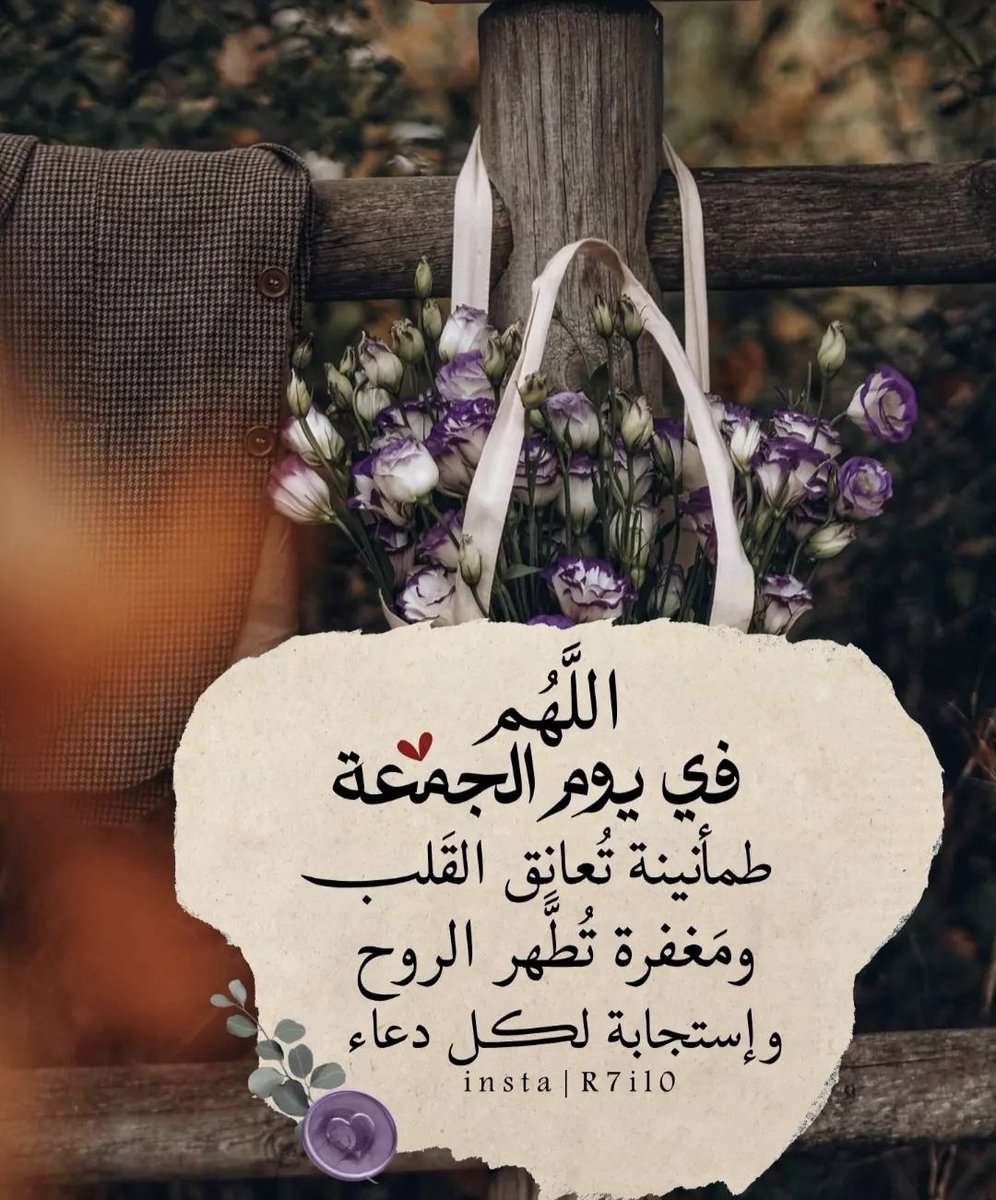 اللَّهُم
في يوم الجمعة
طمأنينة تُعانق القَلب
ومَغفرة تُطَّهر الروح
وإستجابة لكل دعاء
insta|R7i10